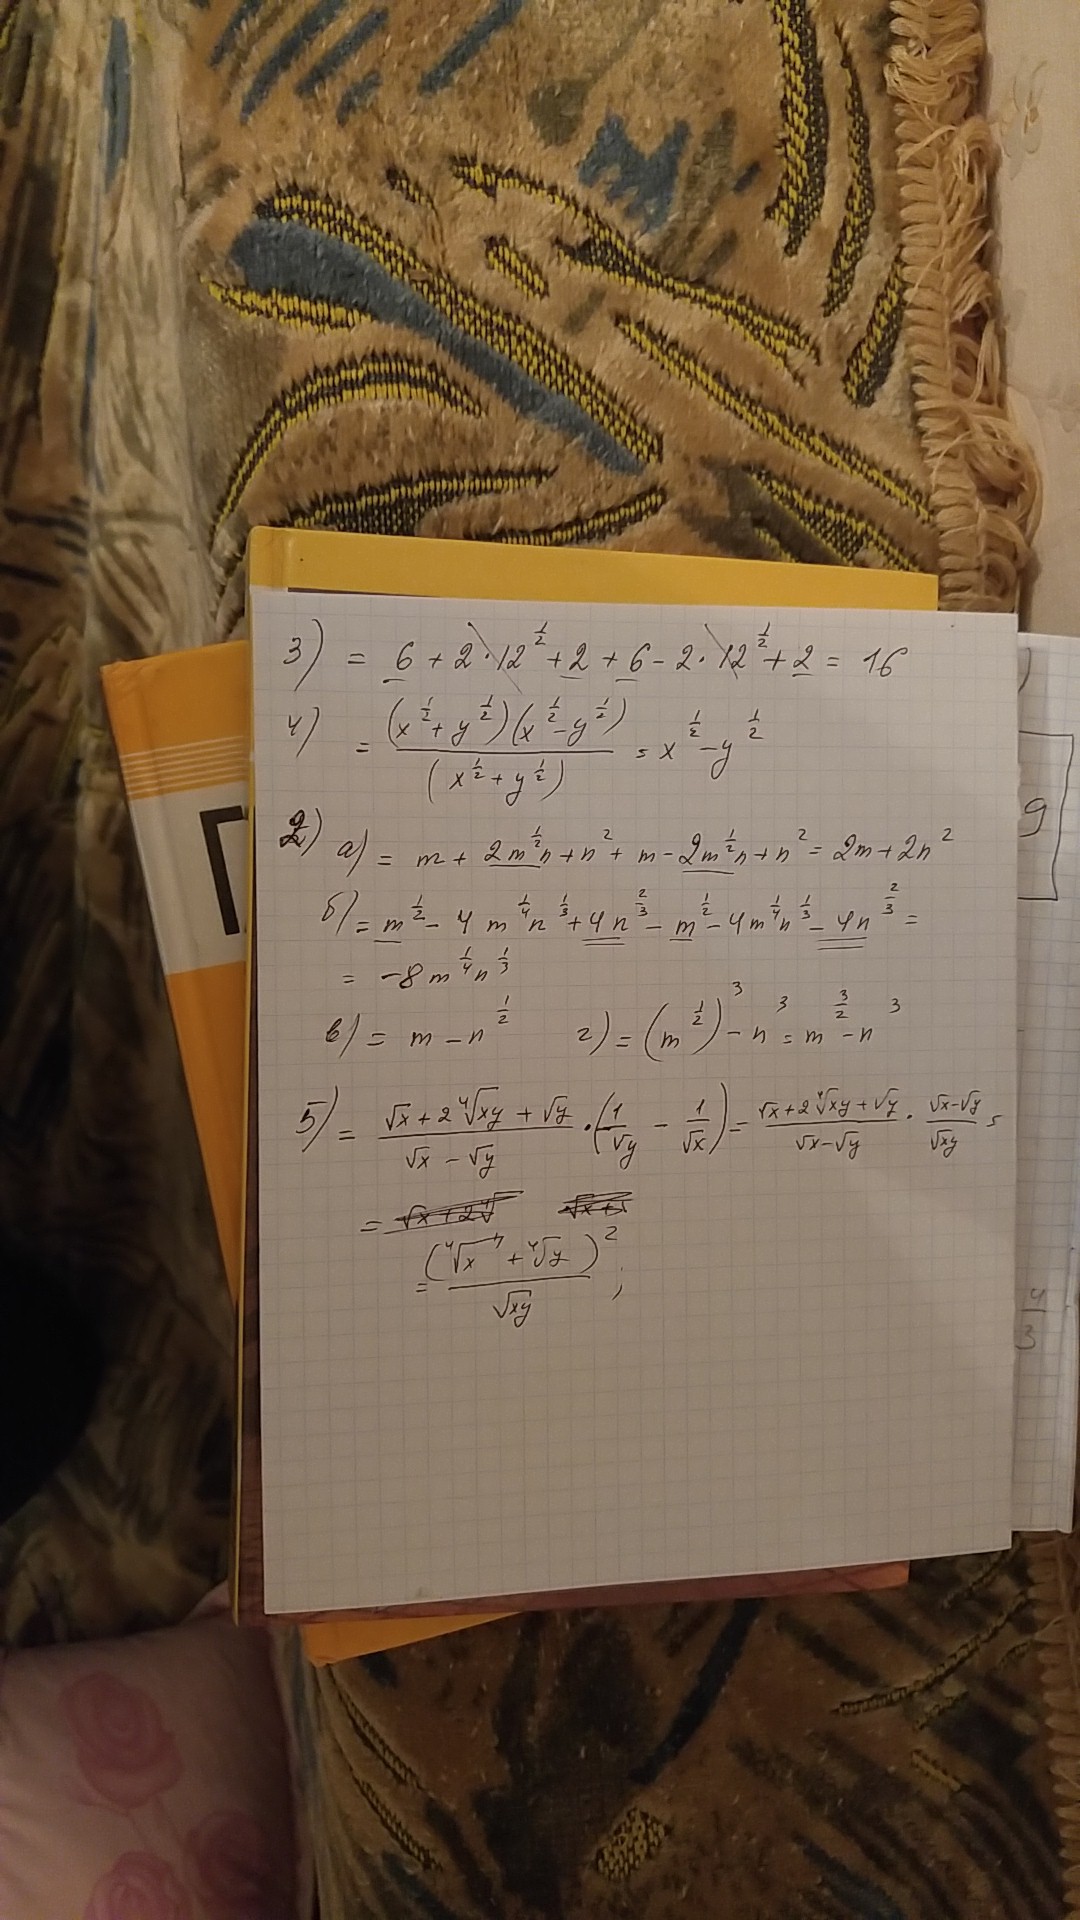 3) = 6 + 2·12^(1/2) + 2 + 6 - 2·12^(1/2) + 2 = 16
4) = (x^(1/2) + y^(1/2))(x^(1/2) - y^(1/2)) / (x^(1/2) + y^(1/2)) = x^(1/2) - y^(1/2)
2) а) = m + 2m^(1/2)n + n² + m - 2m^(1/2)n + n² = 2m + 2n²
б) = m^(1/2) - 4m^(1/4)n^(1/3) + 4n^(2/3) - m^(1/2) - 4m^(1/4)n^(1/3) - 4n^(2/3) =
= -8m^(1/4)n^(1/3)
в) = m - n^(1/2) г) = (m^(1/2))³ - n³ = m^(3/2) - n³
5) = (√x + 2∜xy + √y) / (√x - √y) · (1/√y - 1/√x) = (√x + 2∜xy + √y) / (√x - √y) · (√x - √y) / √xy =
=
= (∜x + ∜y)² / √xy ;
)
9
4/3
П